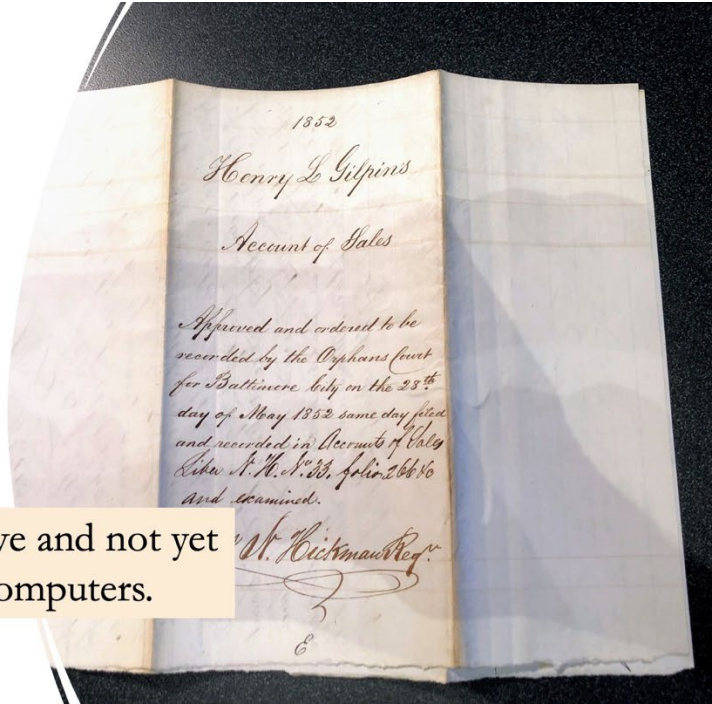 1852
Henry L Gilpins
Account of Sales
Approved and ordered to be
recorded by the Orphans Court
for Baltimore City on the 28th
day of May 1852 same day filed
and recorded in Accounts of Sales
Liber N. H. No 33. folio 266 &c
and examined.
N. Hickman Regr
E
ve and not yet
omputers.